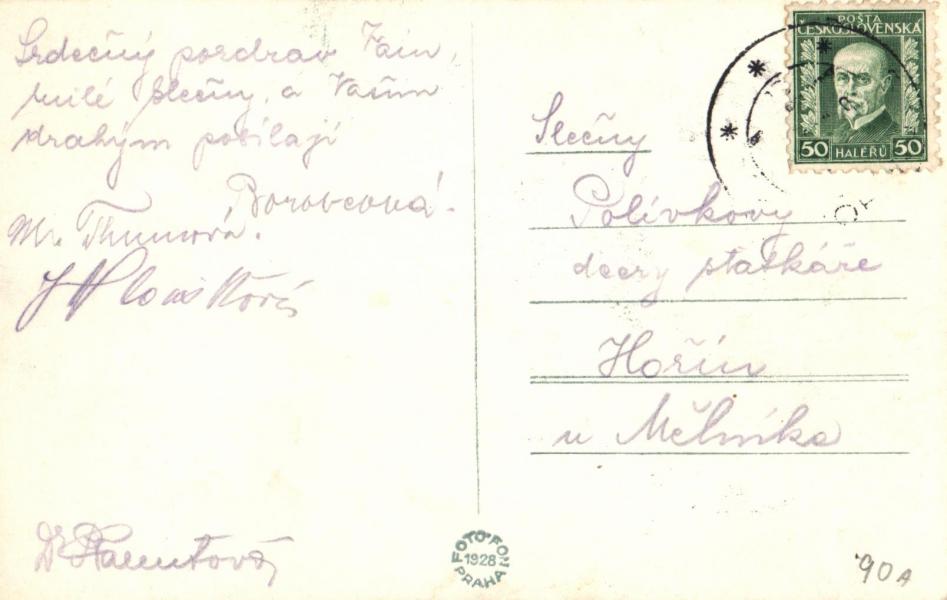 Srdečný pozdrav Vám,
milé slečny, a Vašim
drahým posílají
Borovcová.
Mr. Thumová.
Slečny
Polívkovy
dcery statkáře
Hořín
u Mělníka
POŠTA
ČESKOSLOVENSKÁ
50 HALÉŘŮ 50
FOTO-FON
1928
PRAHA
90A